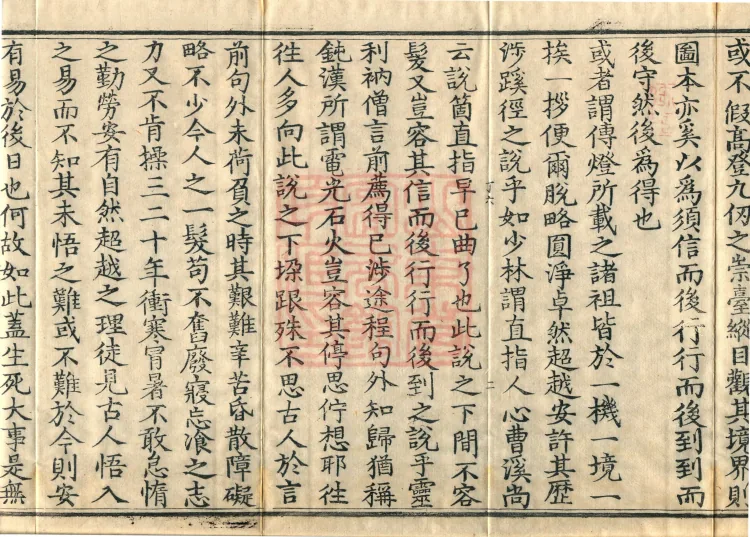 或不假高登九仞之崇臺縱目觀其境界則
圖本亦奚以爲須信而後行行而後到到而
後守然後爲得也
或者謂傳燈所載之諸祖皆於一機一境一
挨一拶便爾脫略圓淨卓然超越安許其歷
涉蹊徑之說乎如少林謂直指人心曹溪尚
云說箇直指早已曲了也此說之下間不容
髮又豈容其信而後行行而後到之說乎靈
利衲僧言前薦得已涉途程句外知歸猶稱
鈍漢所謂電光石火豈容其停思佇想耶徃
徃人多向此說之下垜跟殊不思古人於言
前句外未荷負之時其艱難辛苦昏散障礙
略不少今人之一髮苟不奮廢寢忘飡之志
力又不肯操三二十年衝寒冒暑不敢怠惰
之勤勞安有自然超越之理徒見古人悟入
之易而不知其未悟之難或不難於今則安
有易於後日也何故如此蓋生死大事是無
丁六
二